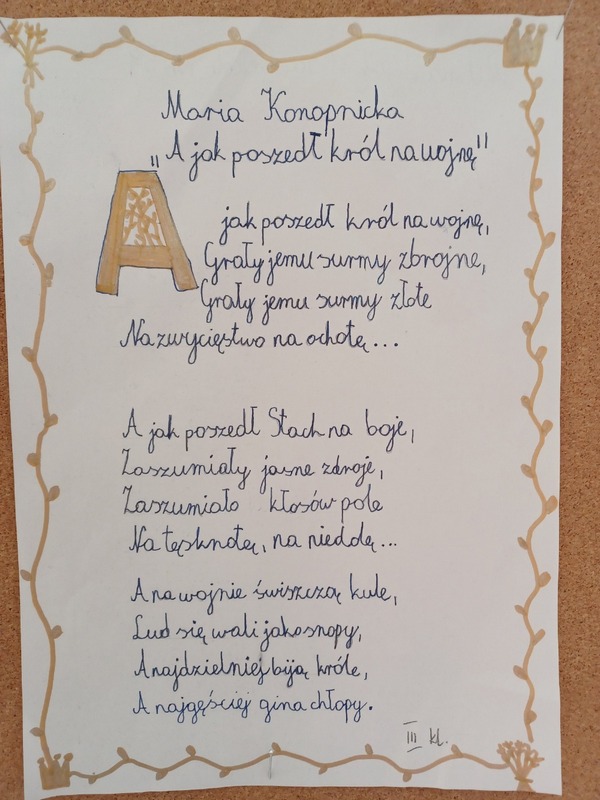 Maria Konopnicka
„A jak poszedł król na wojnę"
A jak poszedł król na wojnę,
Grały jemu surmy zbrojne,
Grały jemu surmy złote
Na zwycięstwo na ochotę...
A jak poszedł Stach na boje,
Zaszumiały jasne zdroje,
Zaszumiało kłosów pole
Na tęsknotę, na niedolę...
A na wojnie świszczą kule,
Lud się wali jako snopy,
A najdzielniej biją króle,
A najgęściej giną chłopy.
III kl.